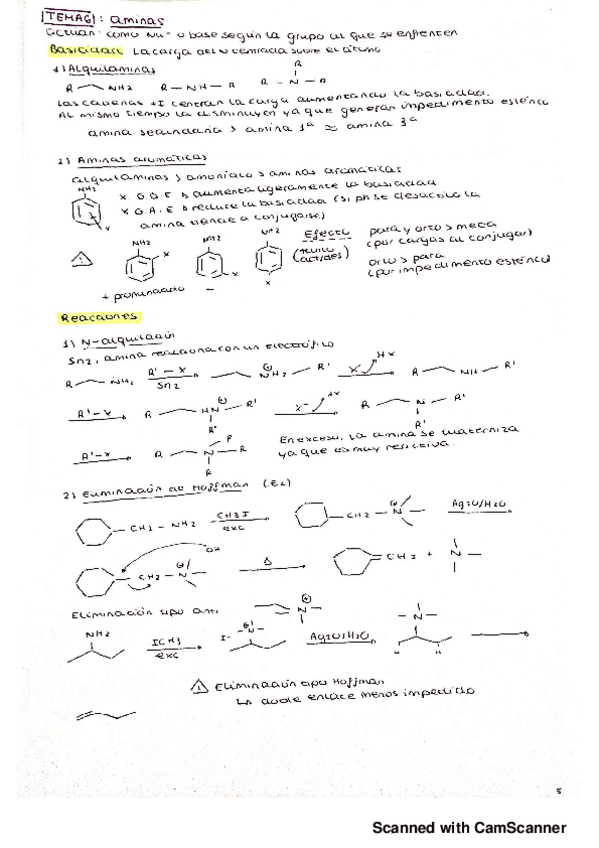 TEMA 6: aminas
actúan como Nu- o base según la grupo al que se enfrenten
Basicidad: La carga del N centrada sobre el átomo
1) Alquilaminas
R NH2 R - NH - R R - N - R
R
Las cadenas +I centran la carga aumentando la basicidad.
Al mismo tiempo la disminuyen ya que generan impedimento estérico
amina secundaria > amina 1ª ≈ amina 3ª
2) Aminas aromáticas
alquilaminas > amoniaco > aminas aromáticas
NH2
x G.D.E → aumenta ligeramente la basicidad
x G.A.E → reduce la basicidad (si ph se desactiva la
amina tiende a conjugarse)
x
NH2 NH2 NH2
x x x
Efecto
para y orto > meta
(por cargas al conjugar)
orto > para
(por impedimento estérico)
+ pronunciado -
Reacciones
1) N-alquilación
Sn2, amina reacciona con un electrófilo
R NH2 R' - X Sn2 R NH2 - R' X- HX R NH - R'
R'-X R HN - R' R' X- HX R N - R' R'
R'-X R N - R R R
En exceso, la amina se cuaterniza
ya que es muy reactiva.
2) Eliminación de Hoffman (E2)
CH2 - NH2 CH3I exc CH2 - N Ag2O/H2O
OH
CH2 - N Δ CH2 + N
Eliminación tipo anti
N
NH2 ICH3 exc I- N Ag2O/H2O N H H
Eliminación tipo Hoffman
↳ doble enlace menos impedido
5
Scanned with CamScanner